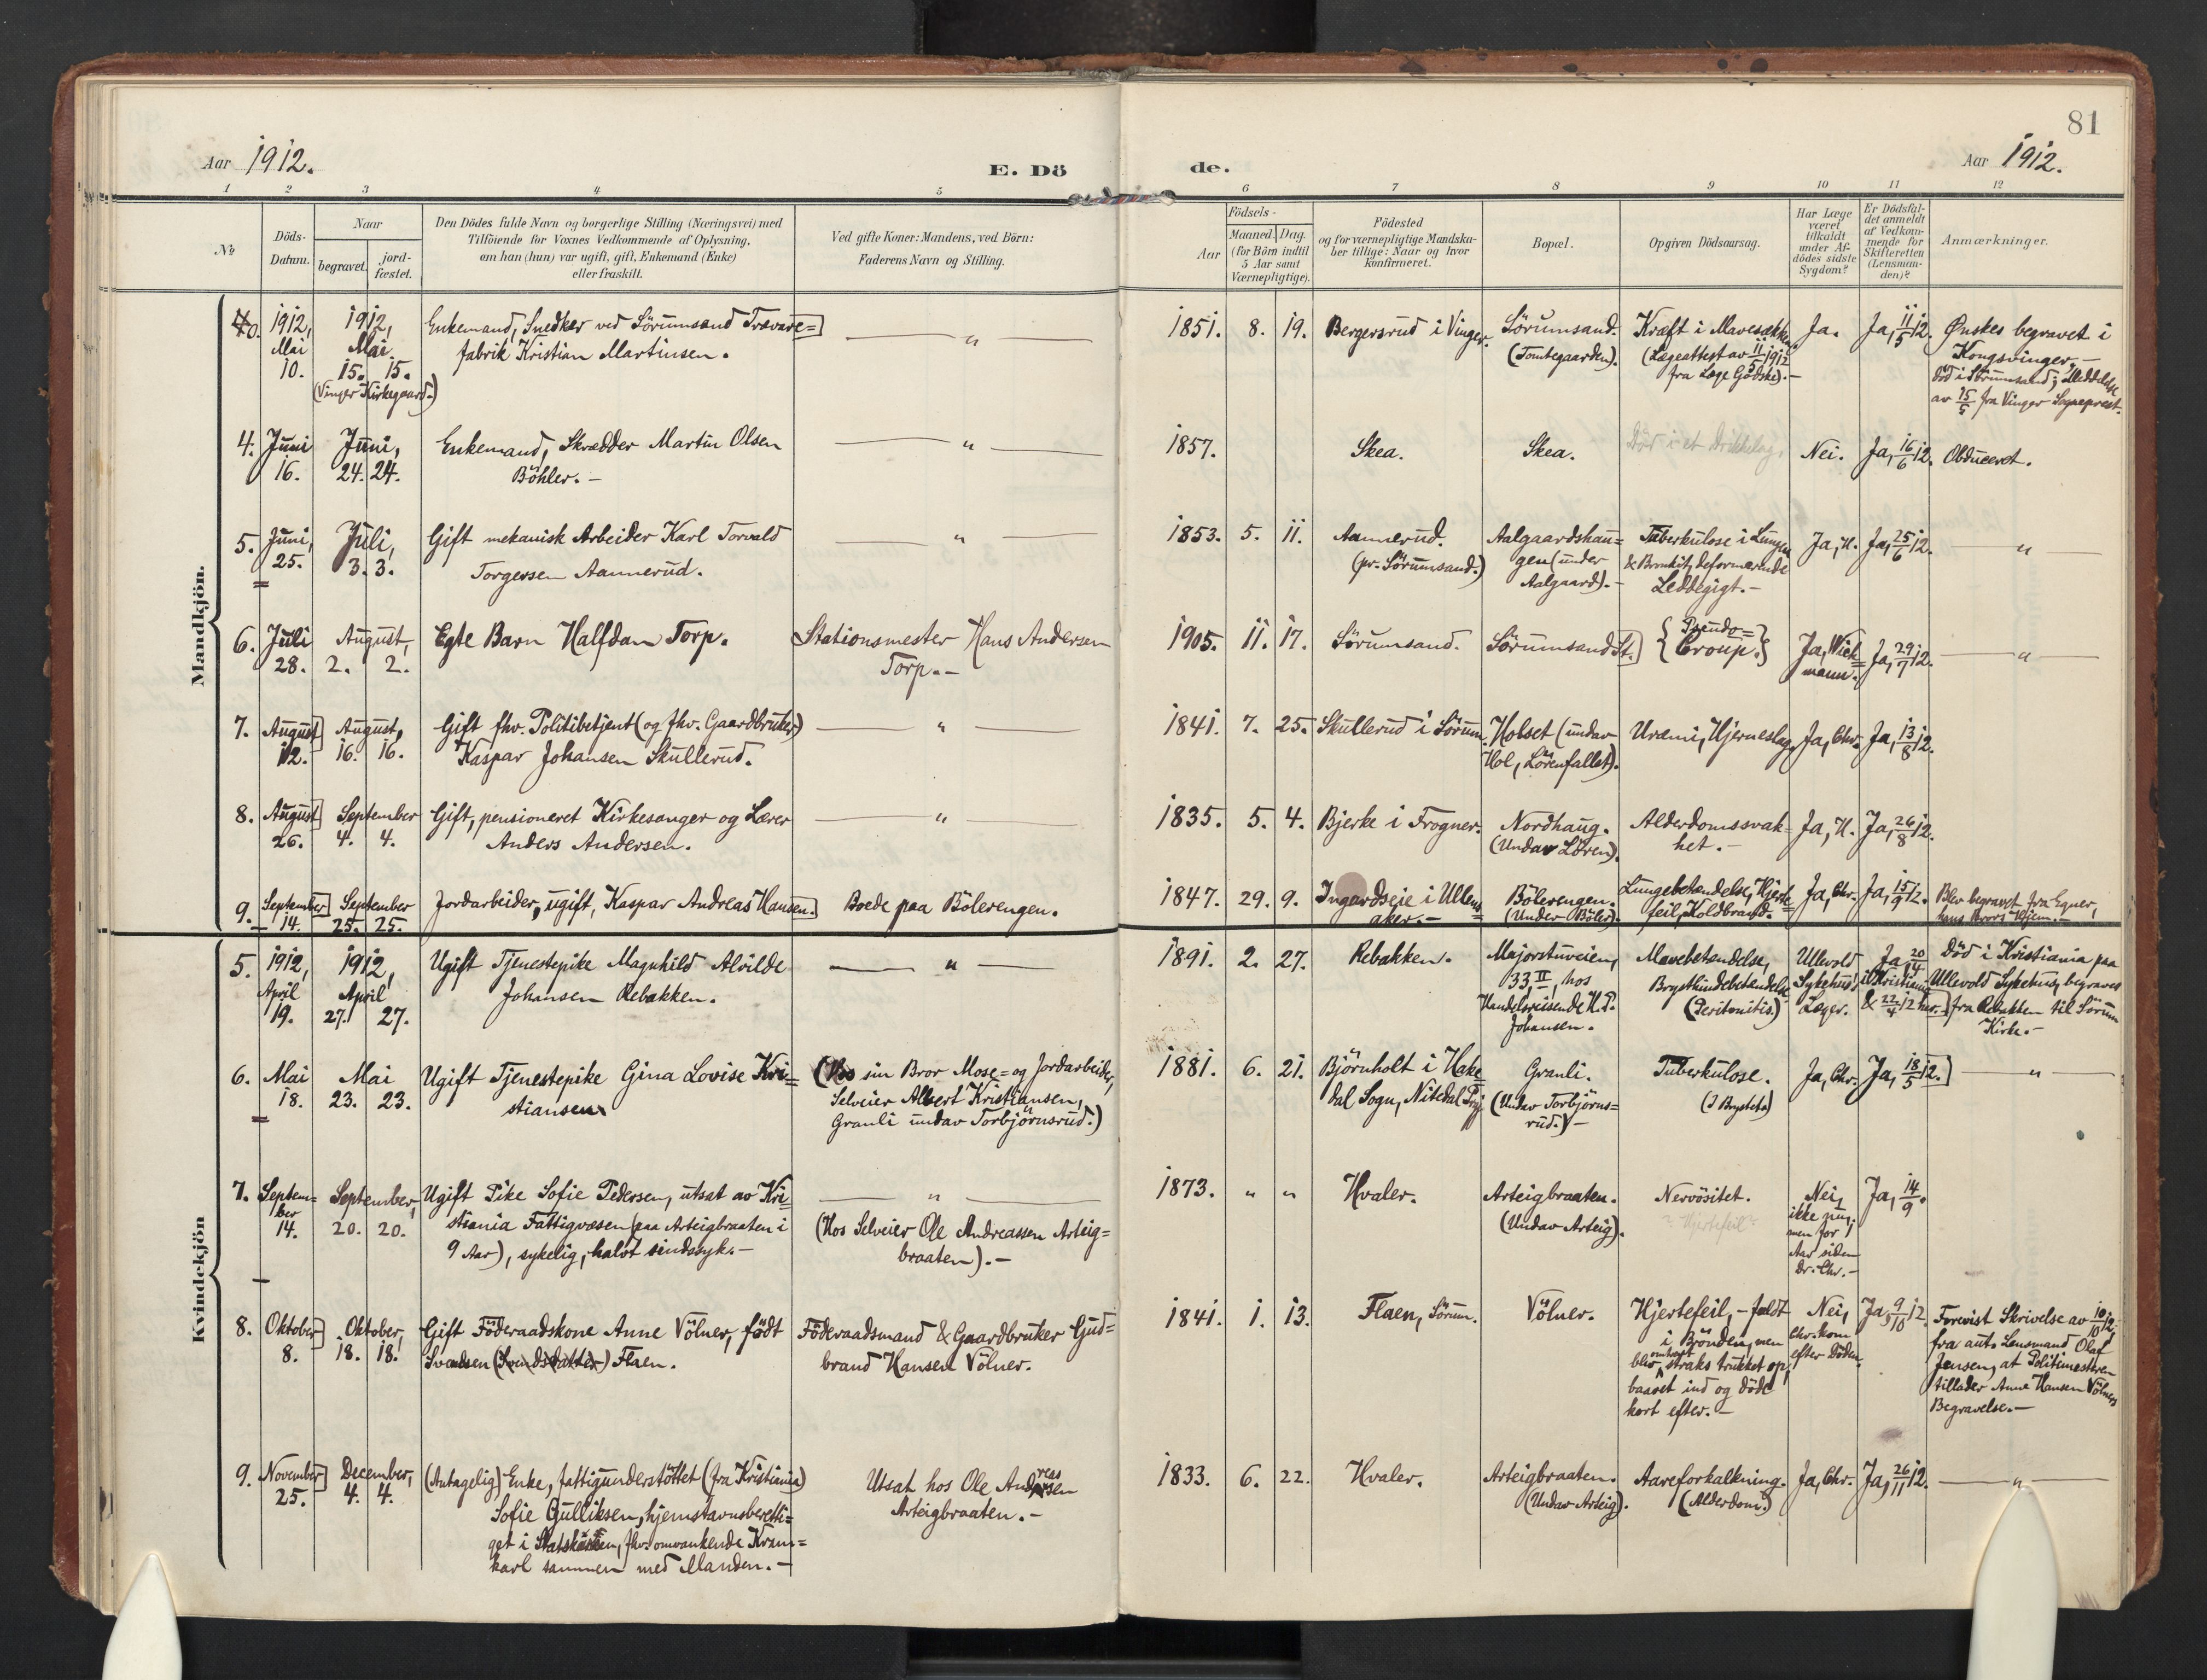 81
Aar 1912.
E. Dö
de.
Aar 1912.
1 2 3 4 5 6 7 8 9 10 11 12
No
Döds-
Datum.
Naar
begravet.
jord-
fæstet.
Den Dödes fulde Navn og borgerlige Stilling (Næringsvei) med
Tilföiende for Voxnes Vedkommende af Oplysning,
om han (hun) var ugift, gift, Enkemand (Enke)
eller fraskilt.
Ved gifte Koner: Mandens, ved Börn:
Faderens Navn og Stilling.
Födsels-
Aar
Maaned. Dag.
(for Börn indtil
5 Aar samt
Værnepligtige).
Födested
og for værnepligtige Mandska-
ber tillige: Naar og hvor
konfirmeret.
Bopæl.
Opgiven Dödsaarsag.
Har Læge
været
tilkaldt
under Af-
dödes sidste
Sygdom?
Er Dödsfal-
det anmeldt
af Vedkom-
mende for
Skifteretten
(Lensman-
den)?
Anmærkninger.
Mandkjön.
0.
1912,
Mai
10.
1912,
Mai
15. 15.
(Vinger Kirkegaard.)
Enkemand, Snedker ved Sörumsand Trævare=
fabrik Kristian Martinsen.
— " —
1851. 8. 19.
Bergersrud i Vinger.
Sörumsand.
(Tomtegaarden).
Kræft i Mavesækken
(Lægeattest av 11/5 1912
fra Læge Gödske). —
Ja.
Ja, 11/5 12.
Ønskes begravet i
Kongsvinger. —
Död i Sörumsand; Meddelelse
av 15/5 fra Vinger Sogneprest.
4.
Juni
16.
Juni,
24. 24.
Enkemand, Skrædder Martin Olsen
Böhler. —
— " —
1857.
Skea.
Skea.
Död i et Drikkelag.
Nei.
Ja, 16/6 12.
Obduceret.
5.
Juni,
25.
Juli,
3. 3.
Gift mekanisk Arbeider Karl Torvald
Torgersen Aannerud.
— " —
1853. 5. 11.
Aannerud.
(pr. Sörumsand.)
Aalgaardshau=
gen (under
Aalgaard). —
Tuberkulose i Lungen
& Bronkit, deformerende
Leddegigt. —
Ja, H.
Ja, 25/6 12.
"
6.
Juli
28.
August,
2. 2.
Egte Barn Halfdan Torp.
Stationsmester Hans Andersen
Torp. —
1905. 11. 17.
Sörumsand.
Sörumsand St.
{Pseudo=
Croup.}
Ja, Wich=
mann.
Ja, 29/7 12.
— " —
7.
August
12.
August,
16. 16.
Gift fhv. Politibetjent (og fhv. Gaardbruker)
Kaspar Johansen Skullerud.
— " —
1841. 7. 25.
Skullerud i Sörum.
Hobset (under
Hol, Lörenfallet).
Uræmi, Hjerneslag.
Ja, Chr.
Ja, 13/8 12.
8.
August
26.
September
4. 4.
Gift, pensioneret Kirkesanger og Lærer
Anders Andersen.
— " —
1835. 5. 4.
Bjerke i Frogner.
Nordhaug.
(Under Lören).
Alderdomssvak-
het. —
Ja, H.
Ja, 26/8 12.
9.
September
14.
September
25. 25.
Jordarbeider, ugift, Kaspar Andreas Hansen.
Boede paa Bölerengen.
1847. 29. 9.
Ingardseie i Ullens=
aker. —
Bölerengen.
(Under Böler).
Lungebetændelse, Hjerte=
feil, Koldbrand.
Ja, Chr.
Ja, 15/9 12.
Blev begravet fra Egner,
hans Brors Hjem. —
Kvindekjön
5.
1912,
April
19.
1912,
April
27. 27.
Ugift Tjenestepike Magnhild Alvilde
Johansen Rebakken.
— " —
1891. 2. 27.
Rebakken.
Majorstuveien,
33, II, hos
Handelsreisende H. P.
Johansen.
Mavebetændelse,
Brysthindebetændelse
(Peritonitis.)
Ullevold
Sykehus's
Læger.
Ja, 20/4
i Kristiania
& 22/4 12 her.
Död i Kristiania paa
Ullevold Sykehus, begraves
fra Rebakken til Sörum
Kirke. —
6.
Mai
18.
Mai
23. 23.
Ugift Tjenestepike Gina Lovise Kri=
stiansen
(Hos sin Bror Mose= og Jordarbeider,
Selveier Albert Kristiansen,
Granli under Torbjörnsrud.)
1881. 6. 21.
Björnholt i Hake
dal Sogn, Nitedal Prgj.
Granli.
(Under Torbjörns=
rud.) —
Tuberkulose.
(I Brystet)
Ja, Chr.
Ja, 18/5 12.
— " —
7.
Septem=
ber
14.
September,
20. 20.
Ugift Pike Sofie Pedersen, utsat av Kri=
stiania Fattigvæsen (paa Arteigbraaten i
9 Aar), sykelig, halvt sindssyk. —
— " —
(Hos Selveier Ole Andreassen Arteig=
braaten). —
1873. " "
Hvaler.
Arteigbraaten.
(Under Arteig).
Nervösitet.
? Hjertefeil?
Nei,
ikke nu,
men for 1
Aar siden
Dr. Chr. —
Ja, 14/9.
8.
Oktober
8.
Oktober,
18. 18.
Gift Föderaadskone Anne Völner, födt
Svendsen (Svendsdatter) Flaen.
Föderaadsmand & Gaardbruker Gud=
brand Hansen Völner.
1841. 1. 13.
Flaen, Sörum.
Völner.
Hjertefeil, – faldt
i Brönden, men
blev omtrent straks trukket op,
baaret ind og döde
kort efter. —
Nei,
Chr. kom
efter Döden.
Ja, 9/10 12.
Forevist Skrivelse av 10/10 12.
fra aut. Lensmand Olaf
Jensen, at Politimesteren
tillader Anne Hansen Völners
Begravelse. —
9.
November
25.
December,
4. 4.
(Antagelig) Enke, fattigunderstöttet (fra Kristiania)
Sofie Gulliksen, hjemstavnsberetti=
get i Statskassen, fhv. omvankende Kram=
karl sammen med Manden. —
Utsat hos Ole Andreassen
Arteigbraaten. —
1833. 6. 22.
Hvaler.
Arteigbraaten.
(Under Arteig).
Aareforkalkning.
(Alderdom.)
Ja, Chr.
Ja, 26/11 12.
— " —